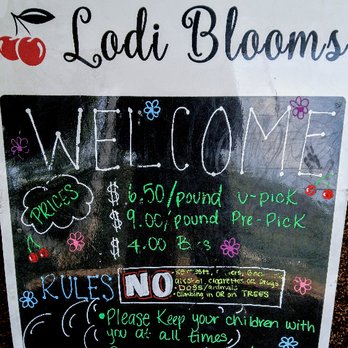 Lodi Blooms
WELCOME
PRICES
$ 6.50/pound U-PicK
$ 9.00/pound Pre-Pick
$ 4.00
RULES NO
alcohol, cigarettes or drugs
- DOGS/animals
- Climbing in OR on TREES
• Please Keep your children with
you at all times